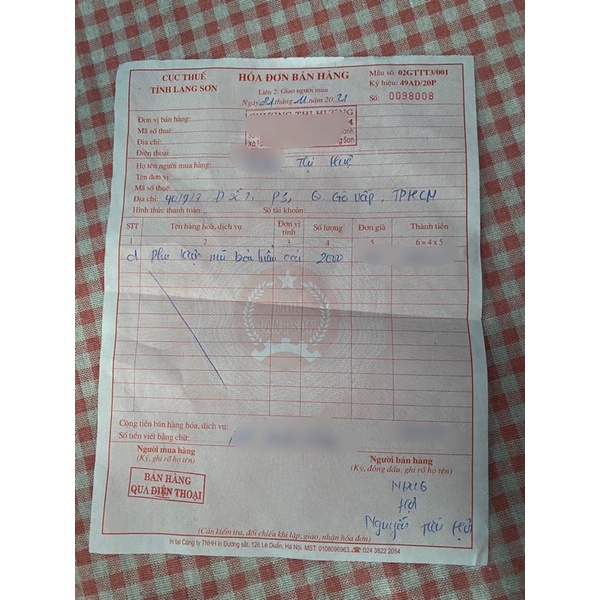 CỤC THUẾ
TỈNH LẠNG SƠN
HÓA ĐƠN BÁN HÀNG
Liên 2: Giao người mua
Ngày 21 tháng 11 năm 2021
Mẫu số: 02GTTT3/001
Ký hiệu: 49AD/20P
Số: 0098008
Đơn vị bán hàng:
Mã số thuế:
Địa chỉ:
Điện thoại
Họ tên người mua hàng: Thị Huệ
Tên đơn vị:
Mã số thuế:
Địa chỉ: P3, Q Gò Vấp, TPHCM
Hình thức thanh toán: Số tài khoản:
STT Tên hàng hóa, dịch vụ Đơn vị tính Số lượng Đơn giá Thành tiền
1 2 3 4 5 6 = 4 x 5
2000
Cộng tiền bán hàng hóa, dịch vụ:
Số tiền viết bằng chữ:
Người mua hàng
(Ký, ghi rõ họ tên)
Người bán hàng
(Ký, đóng dấu, ghi rõ họ tên)
BÁN HÀNG
QUA ĐIỆN THOẠI
Nguyễn
(Cần kiểm tra, đối chiếu khi lập, giao, nhận hóa đơn)
In tại Công ty TNHH In Đường sắt. 126 Lê Duẩn, Hà Nội. MST: 0108096963 ☎:024 3822 2054